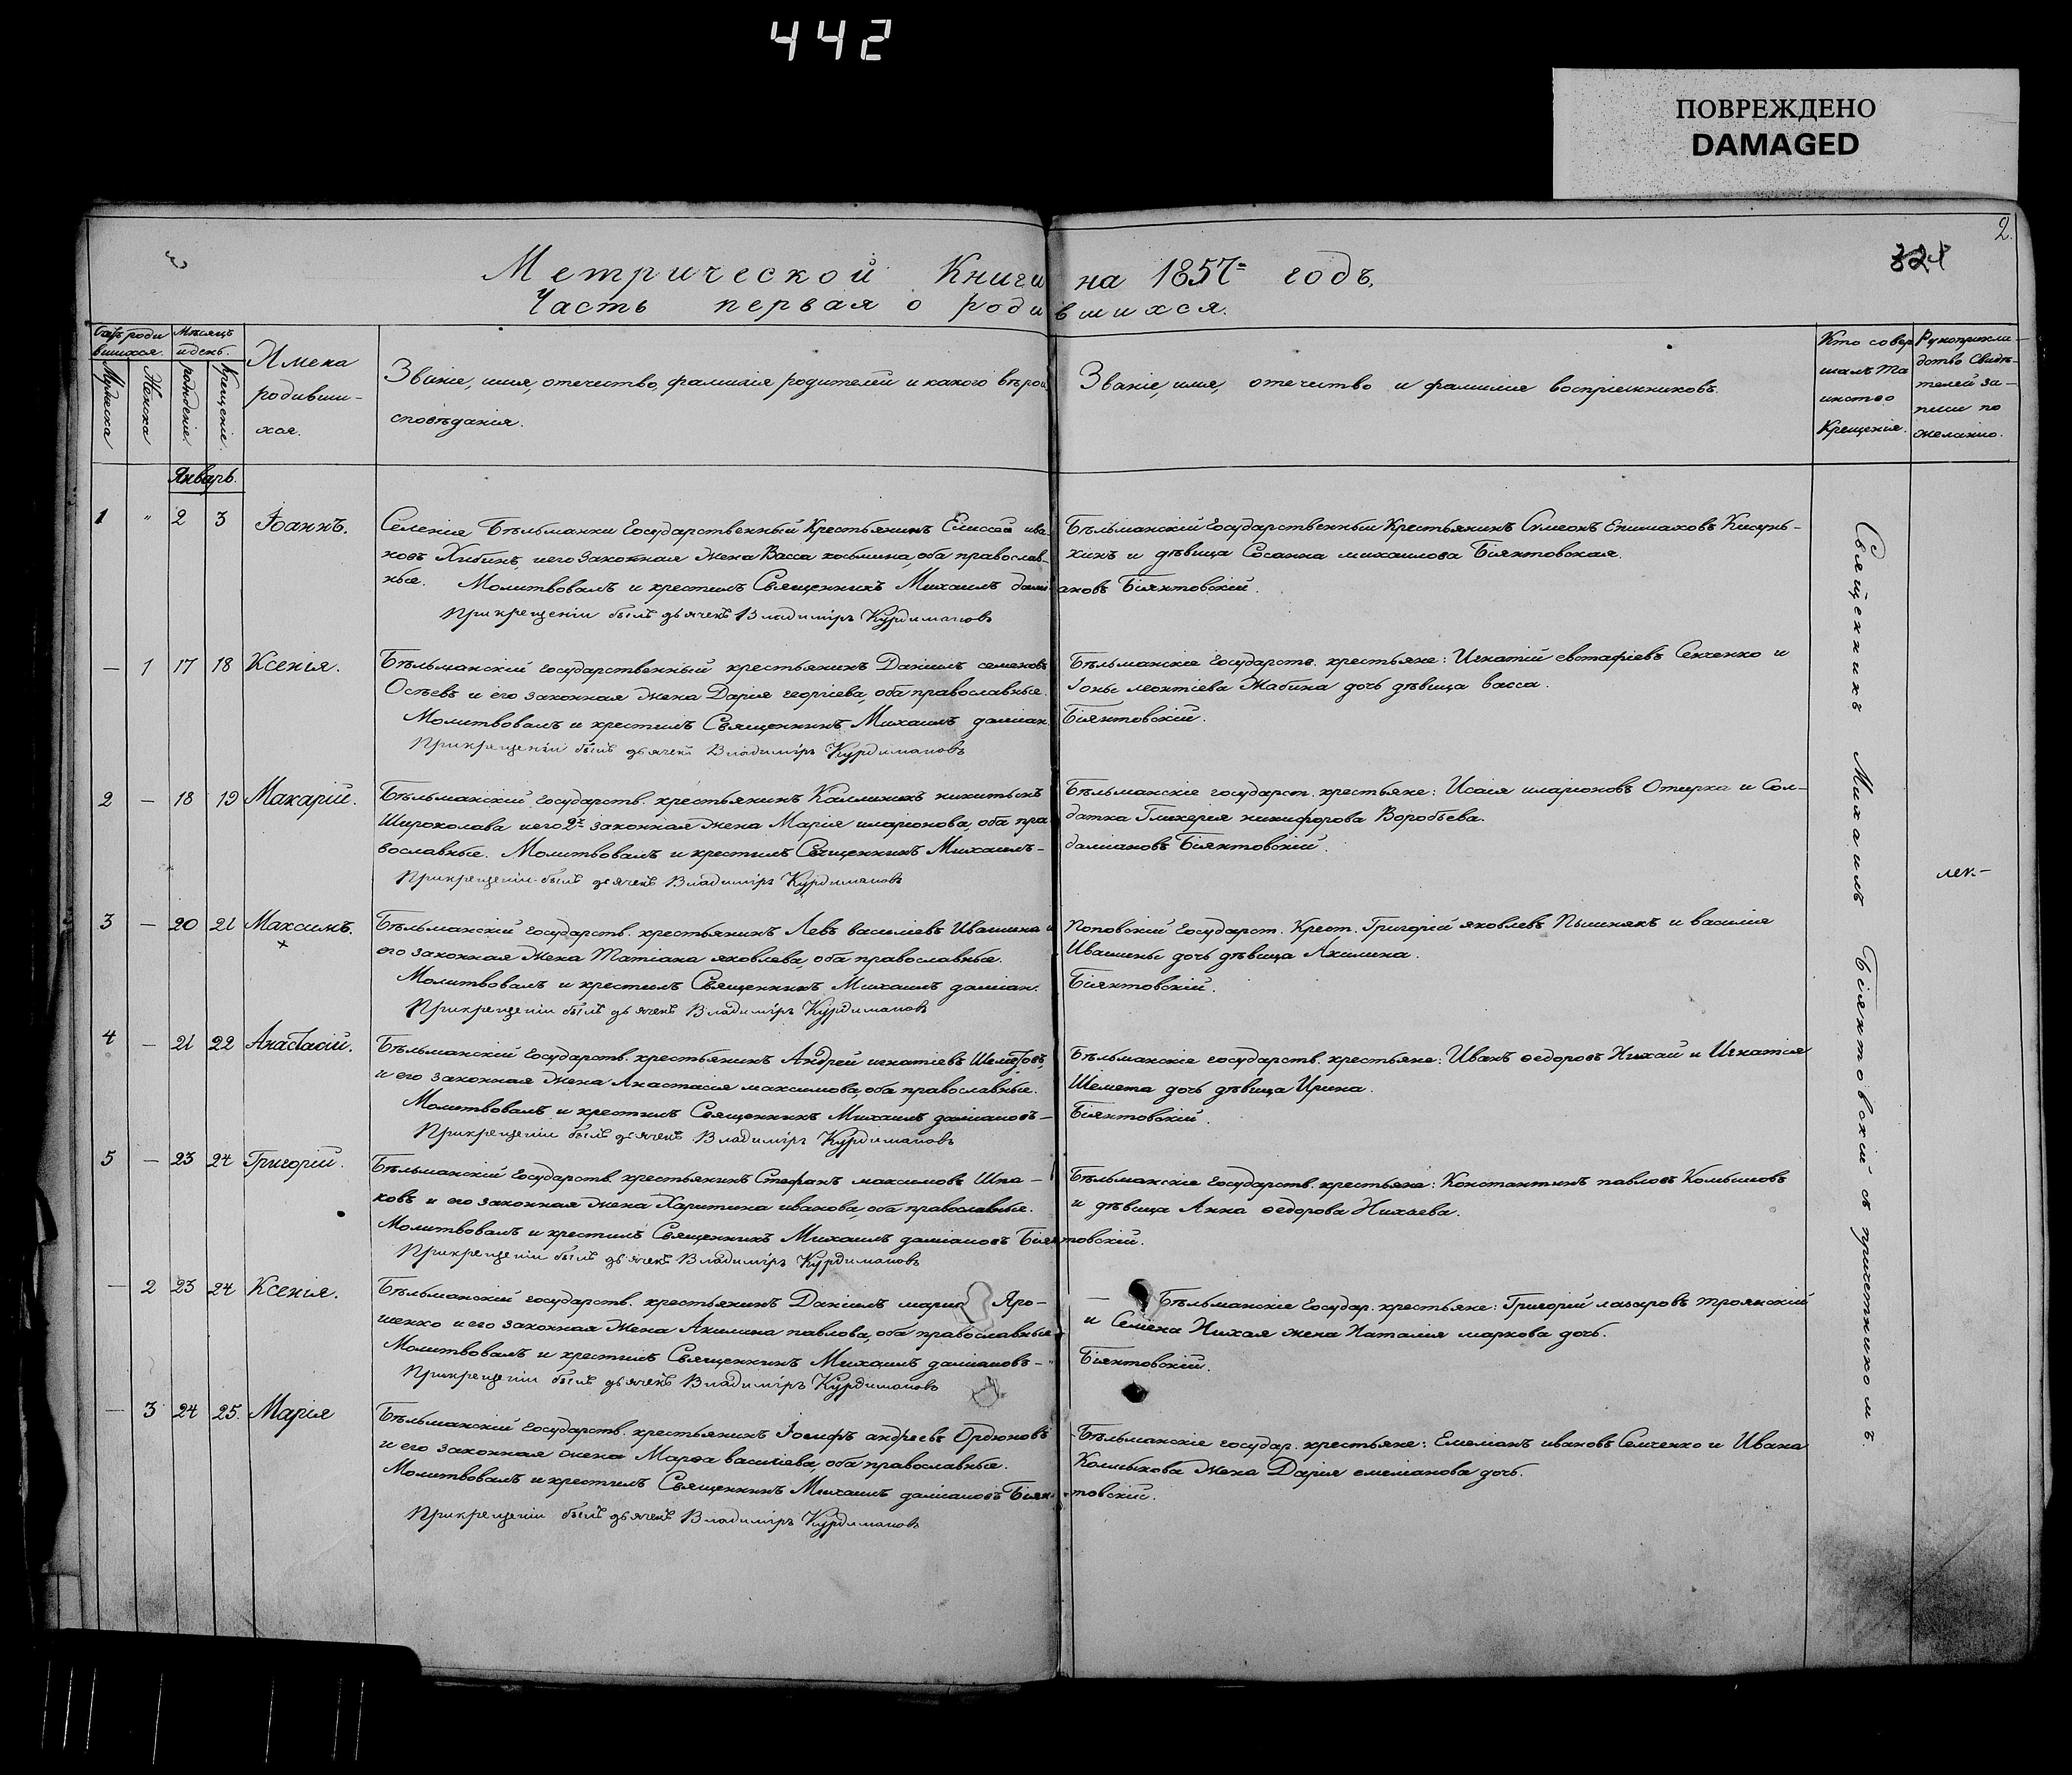 442
ПОВРЕЖДЕНО
DAMAGED
2.
Метрической Книги на 1857 годъ,
Часть первая о родившихся.
Мѣсяцъ и день.
Мужеска
Женска
рожденіе.
Крещеніе.
Имена родивши-
хся.
Званіе, имя, отечество, фамилія родителей и какого вѣрои
сповѣданія.
Званіе, имя, отечество и фамилія воспріемниковъ.
Кто совер
шалъ та
инство
Крещенія.
Рукоприкла-
дство свидѣ-
телей за-
писи по
желанію.
Январь.
1 " 2 3 Іоаннъ.
Селенія Бѣльманки Государственный Крестьянинъ Елиссей ива
новъ Хибинъ, и его законная жена Васса козьмина, оба православ-
ные. Молитвовалъ и крестилъ Священникъ Михаилъ даміановъ Біянтовскій.
При крещеніи былъ дьячекъ Владиміръ Курдимановъ
Бѣльманскій Государственный Крестьянинъ Симеонъ Епимаховъ
и дѣвица Сосанна михаилова Біянтовская.
— 1 17 18 Ксенія.
Бѣльманскій государственный крестьянинъ Даніилъ семеновъ
Осѣевъ и его законная жена Дарія георгіева, оба православные.
Молитвовалъ и крестилъ Священникъ Михаилъ даміан. Біянтовскій.
При крещеніи былъ дьячекъ Владиміръ Курдимановъ
Бѣльманскіе Государств. крестьяне: Игнатій евстафіевъ Сенченко и
Іоны леонтіева Жабина дочь дѣвица васса.
2 — 18 19 Макарій.
Бѣльманскій государств. крестьянинъ Каллиникъ никитинъ
Широколава и его 2я законная жена Марія иларіонова, оба пра
вославные. Молитвовалъ и крестилъ Священникъ Михаилъ- даміановъ Біянтовскій.
При крещеніи былъ дьячекъ Владиміръ Курдимановъ
Бѣльманскіе государст. крестьяне: Исаія иларіоновъ Отирка и Сол-
датка Гликерія никифорова Воробьева.
3 — 20 21 Максимъ.
Бѣльманскій Государств. крестьянинъ Левъ василіевъ Ивашина и
его законная жена Татіана яковлева, оба православные.
Молитвовалъ и крестилъ Священникъ Михаилъ даміан. Біянтовскій.
При крещеніи былъ дьячекъ Владиміръ Курдимановъ
Поповскій Государст. Крест. Григорій яковлевъ Пышнякъ и василія
Ивашины дочь дѣвица Акилина.
4 — 21 22 Анастасій.
Бѣльманскій Государств. крестьянинъ Андрей игнатіевъ Шеметовъ,
и его законная жена Анастасія максимова, оба православные.
Молитвовалъ и крестилъ Священникъ Михаилъ даміановъ— Біянтовскій.
При крещеніи былъ дьячекъ Владиміръ Курдимановъ
Бѣльманскіе государств. крестьяне: Иванъ ѳедоровъ Нихай и Игнатія
Шемета дочь дѣвица Ирина.
5 — 23 24 Григорій.
Бѣльманскій Государств. крестьянинъ Стефанъ максимовъ Шпа-
ковъ и его законная жена Харитина иванова, оба православные.
Молитвовалъ и крестилъ Священникъ Михаилъ даміановъ Біянтовскій.
При крещеніи былъ дьячекъ Владиміръ Курдимановъ
Бѣльманскіе Государств. крестьяне: Константинъ павловъ Комышовъ
и дѣвица Анна ѳедорова Нихаева.
— 2 23 24 Ксенія.
Бѣльманскій государств. крестьянинъ Даніилъ Яро-
шенко и его законная жена Акилина павлова, оба православные
Молитвовалъ и крестилъ Священникъ Михаилъ даміановъ— Біянтовскій.
При крещеніи былъ дьячекъ Владиміръ Курдимановъ
— Бѣльманскіе Государ. крестьяне: Григорій лазаровъ троянскій
и Семена Нихая жена Наталія маркова дочь.
— 3 24 25. Марія
Бѣльманскій Государств. крестьянинъ Іосифъ андреевъ Ордюновъ
и его законная жена Марѳа василіева, оба православные.
Молитвовалъ и крестилъ Священникъ Михаилъ даміановъ Біянтовскій.
При крещеніи былъ дьячекъ Владиміръ Курдимановъ
Бѣльманскіе государ. крестьяне: Емеліанъ ивановъ Семченко и Ивана
Колмыкова жена Дарія емеліанова дочь.
Священникъ Михаилъ Біянтовскій съ причетникомъ.
лек-